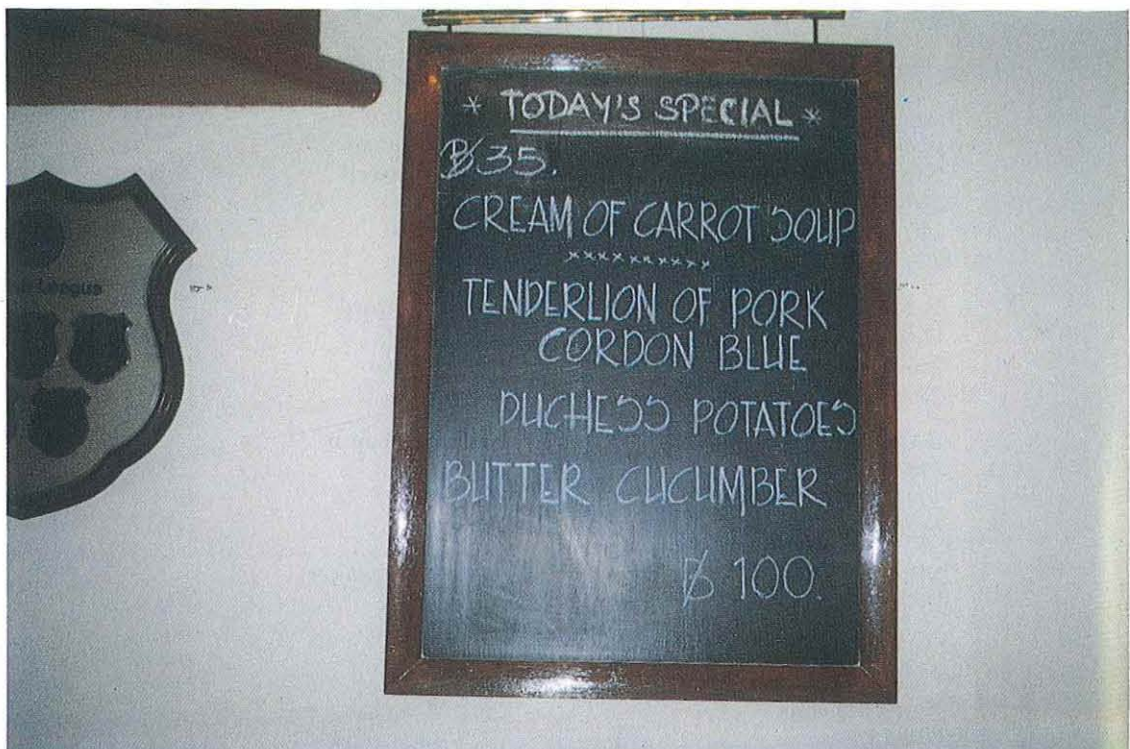 * TODAY'S SPECIAL *
฿35.
CREAM OF CARROT SOUP
xxxxxxxxxx
TENDERLION OF PORK
CORDON BLUE
DUCHESS POTATOES
BUTTER CUCUMBER
฿ 100.
League